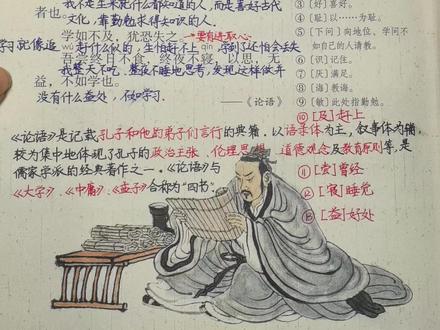 我不是生来就什么都知道的人,而是喜好古代
者也。
文化,靠勤勉来得知识的人。
学如不及,犹恐失之。→要有进取心
学习就像追
赶什么似的,生怕赶不上,学到了还怕会丢失
吾尝终日不食,终夜不寝,以思,无
我整天不吃,整夜不睡地思考,发现这样做并
益,不如学也。
没有什么益处,不如学习。
——《论语》
③〔好〕喜好。
④〔耻〕以……为耻。
⑤〔下问〕向地位、学问不
如自己的人请教。
⑥〔识〕记住。
⑦〔厌〕满足。
⑧〔诲〕教诲。
⑨〔敏〕此处指勤勉。
⑩〔及〕赶上
⑪〔尝〕曾经
⑫〔寝〕睡觉
⑬〔益〕好处
《论语》是记载孔子和他的弟子们言行的典籍,以语录体为主,叙事体为辅,
较为集中地体现了孔子的政治主张、伦理思想、道德观念及教育原则等,是
儒家学派的经典著作之一。《论语》与
《大学》、《中庸》、《孟子》合称为"四书"。